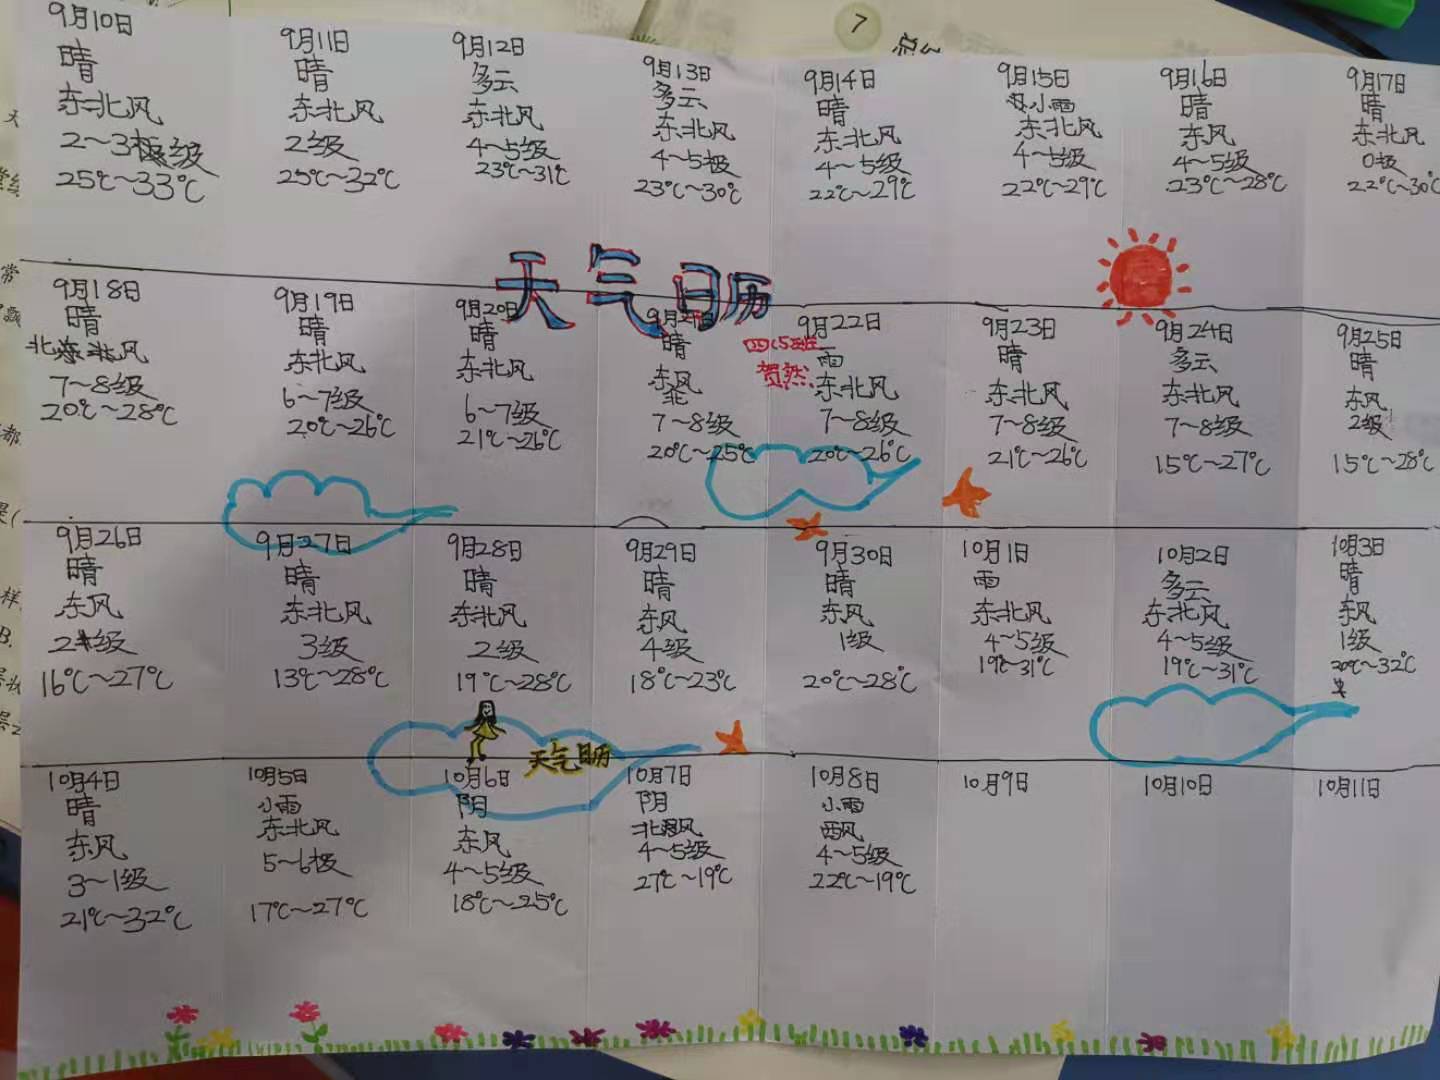 7
9月10日
晴
东北风
2~3级
25℃~33℃
9月11日
晴
东北风
2级
25℃~32℃
9月12日
多云
东北风
4~5级
23℃~31℃
9月13日
多云
东北风
4~5极
23℃~30℃
9月14日
晴
东北风
4~5级
22℃~29℃
9月15日
小雨
东北风
4~5级
22℃~29℃
9月16日
晴
东风
4~5级
23℃~28℃
9月17日
晴
东北风
0极
22℃~30℃
天气日历
四(5)班
贺然
9月18日
晴
北风
7~8级
20℃~28℃
9月19日
晴
东北风
6~7级
20℃~26℃
9月20日
晴
东北风
6~7级
21℃~26℃
9月21日
晴
东风
7~8级
20℃~25℃
9月22日
雨
东北风
7~8级
20℃~26℃
9月23日
晴
东北风
7~8级
21℃~26℃
9月24日
多云
东北风
7~8级
15℃~27℃
9月25日
晴
东风
2级
15℃~28℃
9月26日
晴
东风
2级
16℃~27℃
9月27日
晴
东北风
3级
13℃~28℃
9月28日
晴
东北风
2级
19℃~28℃
9月29日
晴
东风
4级
18℃~23℃
9月30日
晴
东风
1级
20℃~28℃
10月1日
雨
东北风
4~5级
19℃~31℃
10月2日
多云
东北风
4~5级
19℃~31℃
10月3日
晴
东风
1级
20℃~32℃
天气日历
10月4日
晴
东风
3~1级
21℃~32℃
10月5日
小雨
东北风
5~6极
17℃~27℃
10月6日
阴
东风
4~5级
18℃~25℃
10月7日
阴
北风
4~5级
27℃~19℃
10月8日
小雨
西风
4~5级
22℃~19℃
10月9日
10月10日
10月11日